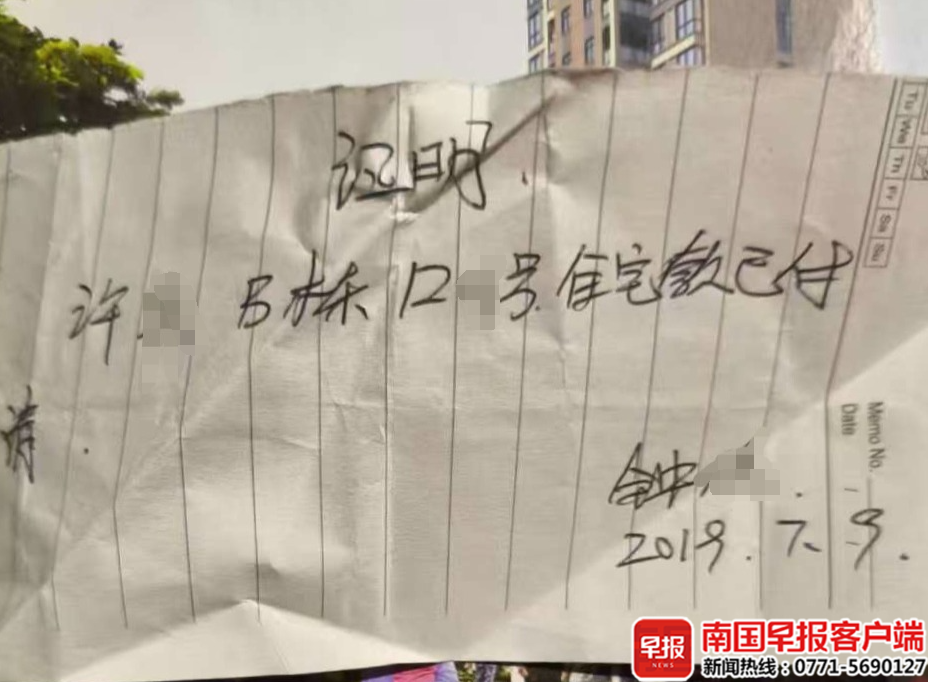 证明
许 B栋12 号住宅款已付
清.
钟 .
2019.7.9.
Tu We Th Fr Sa Su
Memo No.
Date
早报
NEWS
南国早报客户端
新闻热线：0771-5690127